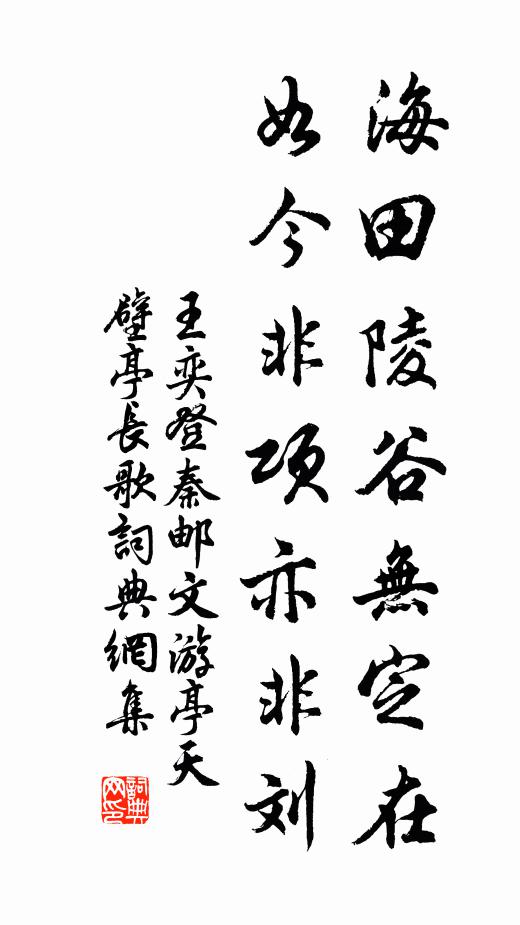 海田陵谷無定在
如今非项亦非刘
王奕登秦邮文游亭天
壁亭長歌詞典網集
詞典
网印